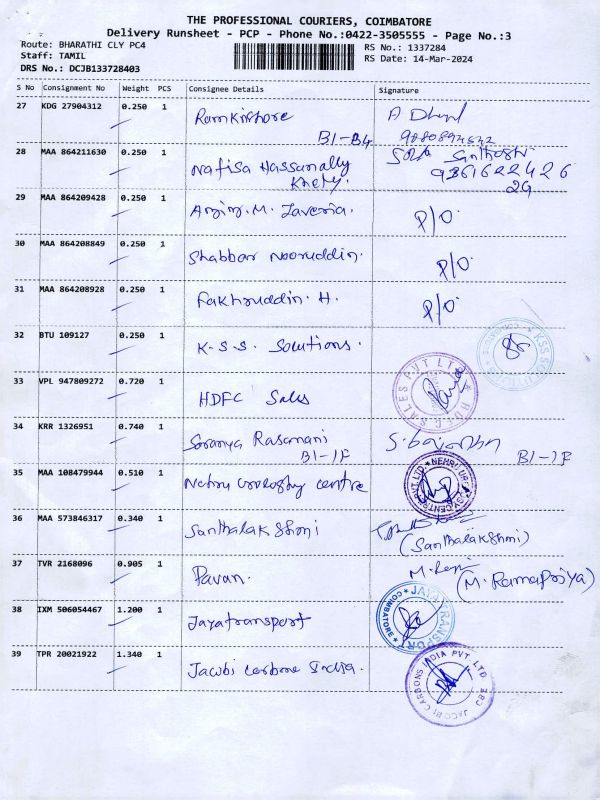 THE PROFESSIONAL COURIERS, COIMBATORE
Delivery Runsheet - PCP - Phone No.:0422-3505555 - Page No.:3
Route: BHARATHI CLY PC4
Staff: TAMIL
DRS No.: DCJB133728403
RS No.: 1337284
RS Date: 14-Mar-2024
S No Consignment No Weight PCS Consignee Details Signature
27 KDG 27904312 0.250 1 Ramkishore
B1-B4
28 MAA 864211630 0.250 1 Nafisa Hassanally
Santhosh
29 MAA 864209428 0.250 1 Anjin.M. Javeria. P/O.
30 MAA 864208849 0.250 1 Shabbar Nooruddin. P/O.
31 MAA 864208928 0.250 1 Fakhruddin. H. P/O.
32 BTU 109127 0.250 1 K.S.S. Solutions.
33 VPL 947809272 0.720 1 HDFC Sales
34 KRR 1326951 0.740 1 Saranya Rasamani
B1-1F B1-1F
35 MAA 108479944 0.510 1 Nehru urology centre
36 MAA 573846317 0.340 1 Santhalakshmi
(Santhalakshmi)
37 TVR 2168096 0.905 1 Pavan.
(M. Ramapriya)
38 IXM 506054467 1.200 1 Jayatransport
39 TPR 20021922 1.340 1 Jacobi carbone India.
JACOBI CARBONS INDIA PVT LTD CBE